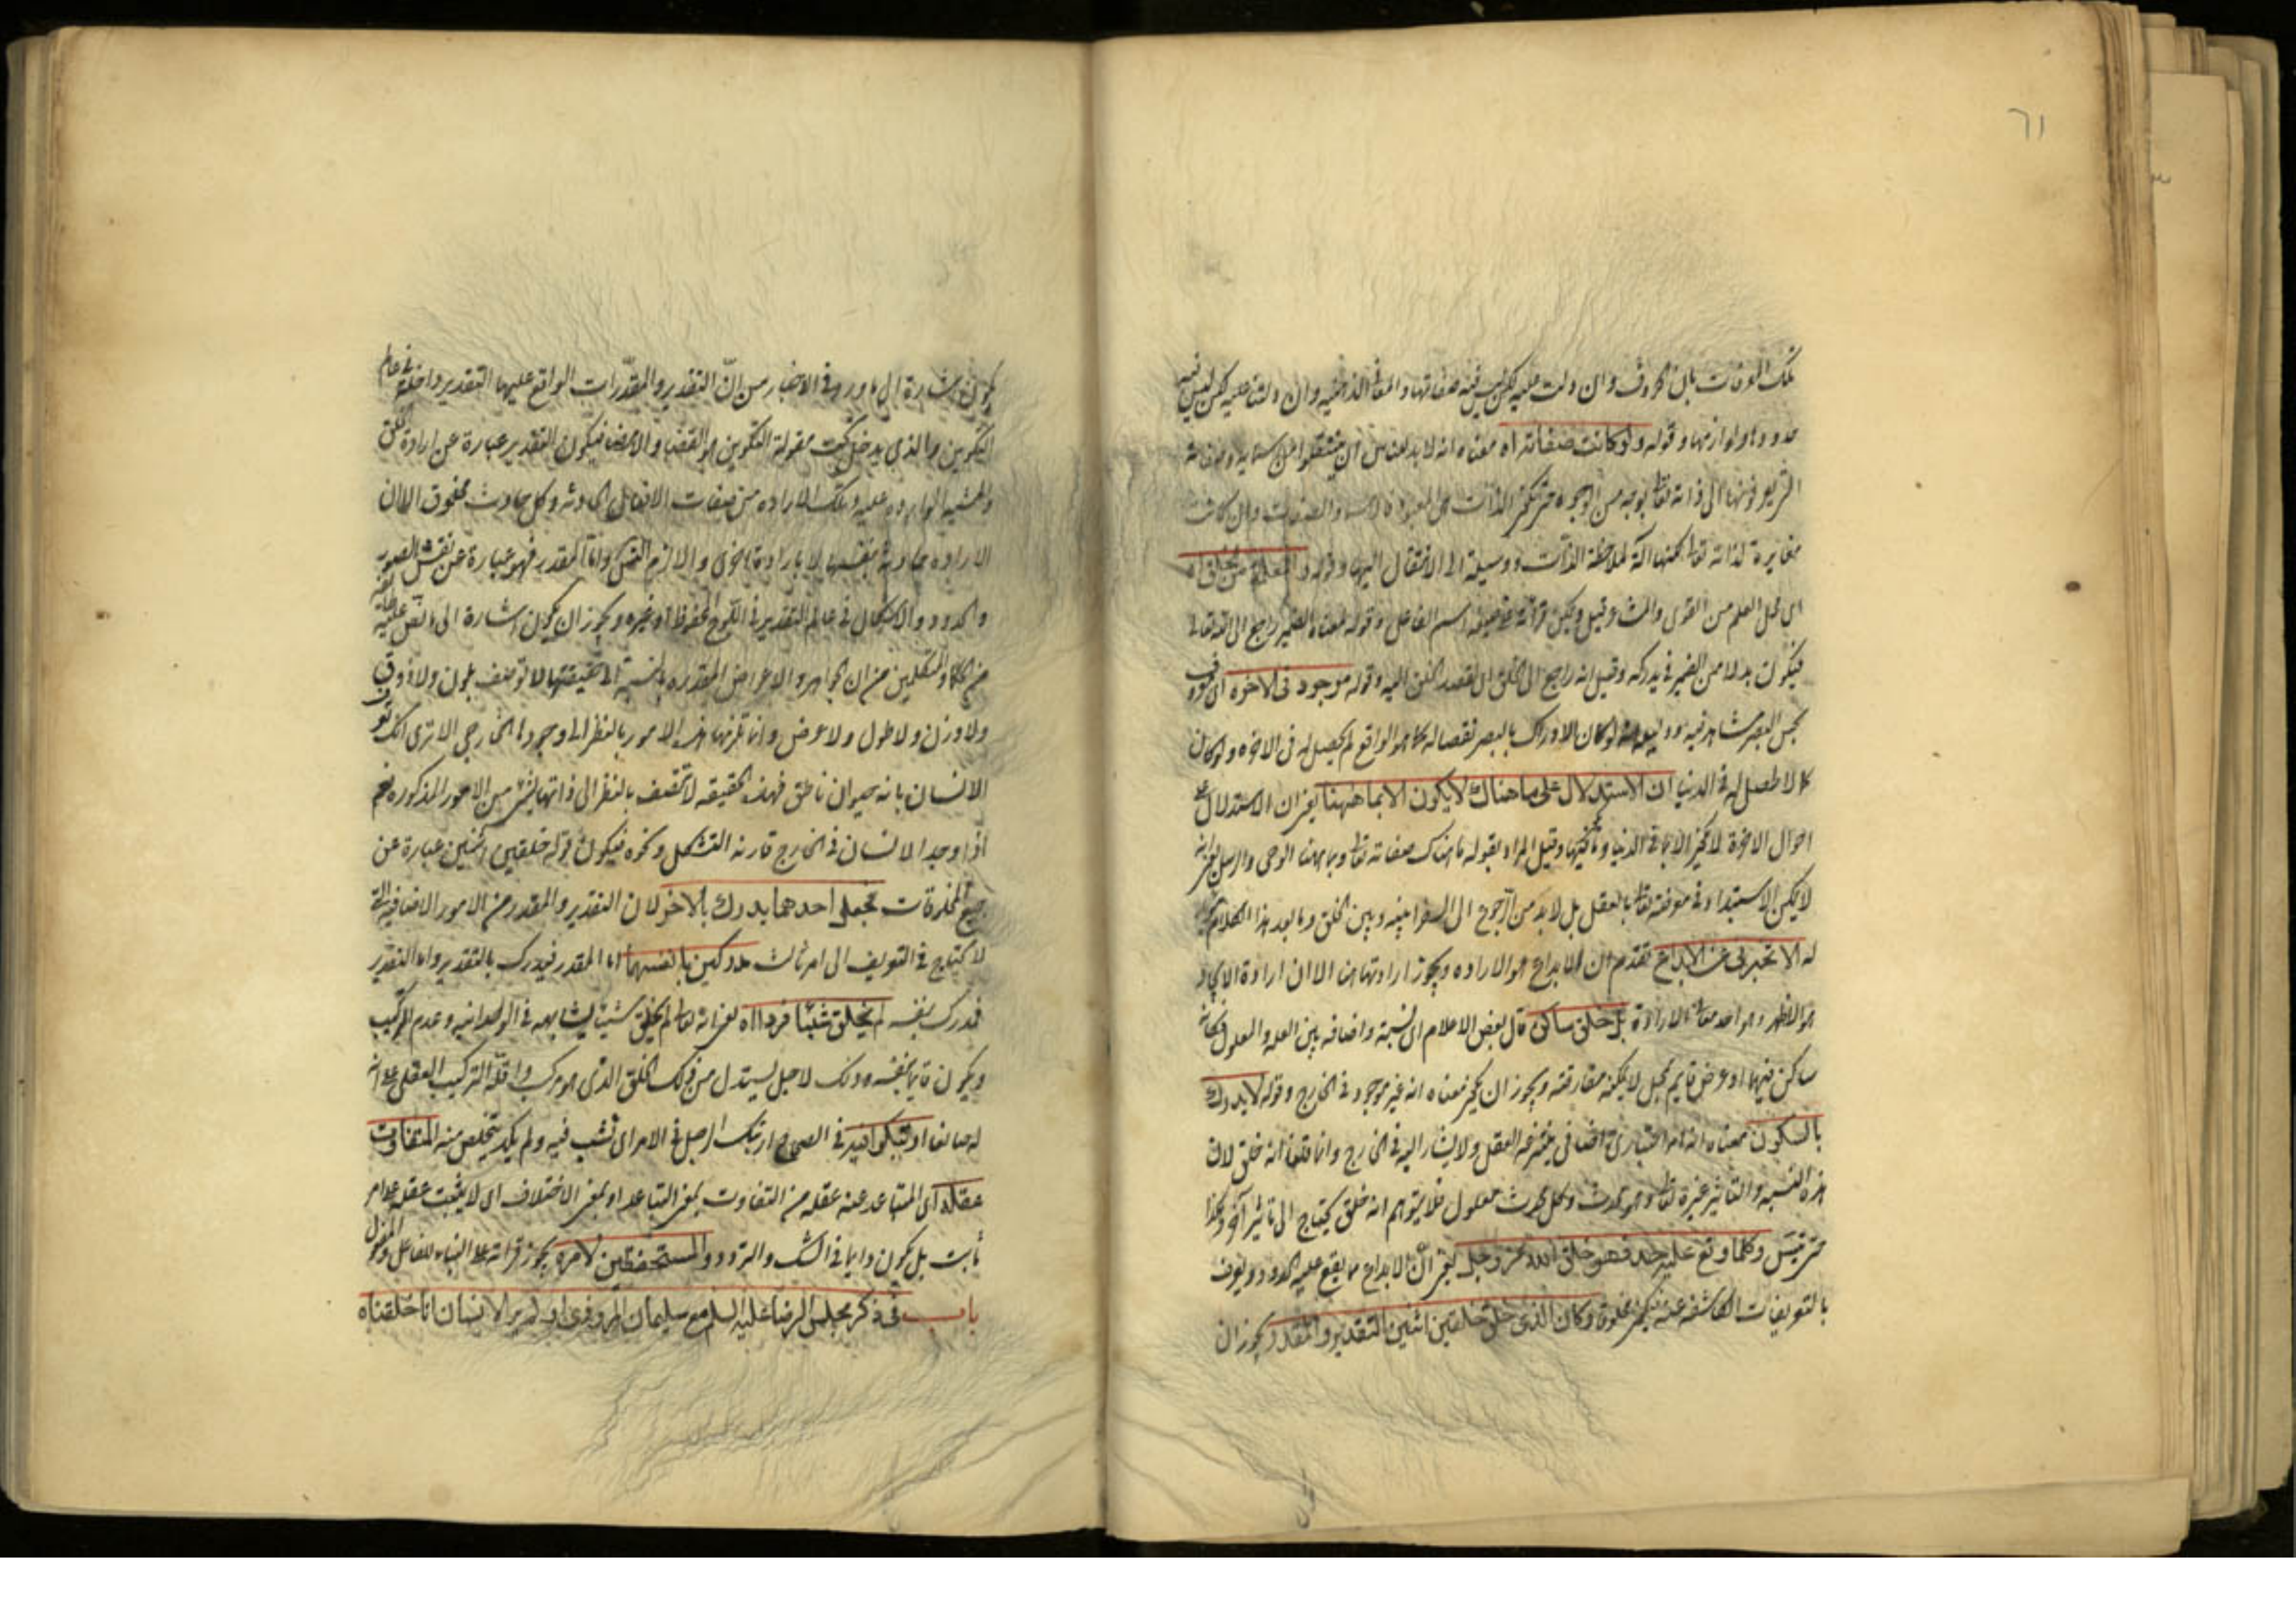 ٦١
تلك المعرفات بان الحروف وان دلت عليه لكن ليس فيه صفاتها والمعاني الذاتية وان دلت عليه لكن ليس فيه
حدودها ولوازمها وقوله ولو كانت صفاته اه معناه انه لا بد للناس ان ينتقلوا من اسمائه وصفاته
الى ذاته تعالى بوجه من الوجوه حتى تكون الذات هي المعبود فالاسماء والصفات وان كانت
مغايرة لذاته تعالى لكنها آلة لملاحظة الذات ووسيلة الى الانتقال اليها وقوله والمعلمة من خلقه اه
اى محل العلم من القوى والمشاعر وقيل ويمكن قرائته على صيغة اسم الفاعل وقوله لمعناه الضمير راجع الى الله تعالى
فيكون بدلا من الضمير في يدركه وقيل انه راجع الى الخلق اى لقصد الخلق اليه وقوله موجود فى الاخرة اى
بحس البصر مشاهد فيه لو كان الادراك بالبصر نقصا له كما هو الواقع لم يحصل له فى الاخرة ولو كان
كمالا لحصل له فى الدنيا ان الاستدلال على ما هناك لا يكون الا بما ههنا يعنى ان الاستدلال على
احوال الاخرة لا يمكن الا بما فى الدنيا وقيل المراد بقوله ما هناك صفاته تعالى وبما ههنا الوحى والرسل يعنى انه
لا يمكن الاستبداد فى معرفته تعالى بالعقل بل لا بد من الرجوع الى السفراء بينه وبين الخلق وما بعد هذا الكلام
له الا تخبرنى عن الابداع تقدم ان الابداع هو الارادة ويجوز ارادتها هنا الا ان ارادة الايجاد
هو الاظهر وهو احد معانى الارادة بل خلق ساكن قال بعض الاعلام اى نسبة واضافة بين العلة والمعلول فكانه
ساكن فيهما او عرض قايم بمحل لا يمكنه مفارقته ويجوز ان يكون معناه انه غير موجود فى الخارج وقوله لا يدرك
بالسكون معناه انه امر اعتبارى اضافى ينتزعه العقل ولا يشار اليه فى الخارج وانما قلنا انه خلق لان
هذه النسبة والتاثير غيره تعالى وهو محدث وكل محدث معلول فلا يتوهم انه خلق يحتاج الى تاثير آخر وهكذا
حتى يتسلسل وكلما وقع عليه حد فهو خلق الله عز وجل يعنى ان الابداع مما يقع عليه الحدود ويعرف
بالتعريفات الكاشفة عنه فيكون مخلوقا وكان الذى خلق خلقين اثنين التقدير والمقدر يجوز ان
يكون اشارة الى ما ورد فى الاخبار من ان التقدير والمقدّرات الواقع عليها التقدير داخلة فى عالم
التكوين والذى يدخل تحت مقولة التكوين هو القضا والامضا فيكون التقدير عبارة عن ارادة الخلق
والمشيه الوارده عليه وتلك الاراده من صفات الافعال الحادثه وكل حادث مخلوق الا ان
الاراده حادثة بنفسها لا بارادة اخرى والا لزم التسلسل واما المقدر فهو عبارة عن نقش الصور
والحدود والاشكال فى عالم التقدير فى اللوح المحفوظ او غيره ويجوز ان يكون اشارة الى ما نص عليه
من الحكما والمتكلمين من ان الجواهر والاعراض المقدره بالنسبة الى حقيقتها لا توصف بلون ولا ذوق
ولا وزن ولا طول ولا عرض وانما تلزمها هذه الامور بالنظر الى وجودها الخارجى الا ترى انك تعرف
الانسان بانه حيوان ناطق فهذه الحقيقه لا تتصف بالنظر الى ذاتها بشئ من الامور المذكوره نعم
اذا وجد الانسان فى الخارج قارنه التشكل ونحوه فيكون قوله خلقين اثنين عبارة عن
جميع المخلوقات فجعل احدهما يدرك بالاخر لان التقدير والمقدر من الامور الاضافية التى
لا تحتاج فى التعريف الى امر ثالث مدركين بانفسهما اما المقدر فيدرك بالتقدير واما التقدير
فمدرك بنفسه لم يخلق شيئا فردا اه يعنى انه تعالى لم يخلق شيئا يشابهه فى الوحدانيه وعدم التركيب
ويكون قايما بنفسه وذلك لاجل ليستدل من ذلك الخلق الذى هو مركب واقله التركيب العقلى على انه
له صانعا او تبكو افيد فى الصحاح ارتبك الرجل فى الامر اى نشب فيه ولم يكد يتخلص منه المتفاوت
عقله اى المتباعد عنه عقله من التفاوت بمعنى التباعد او بمعنى الاختلاف اى لا يثبت عقله على امر
ثابت بل يكون دايما فى الشك والتردد والمستحفظين لامره يجوز قرائته على البناء للفاعل والمفعول
باب فى ذكر مجلس الرضا عليه السلم مع سليمان المروزى اولم ير الانسان انا خلقناه